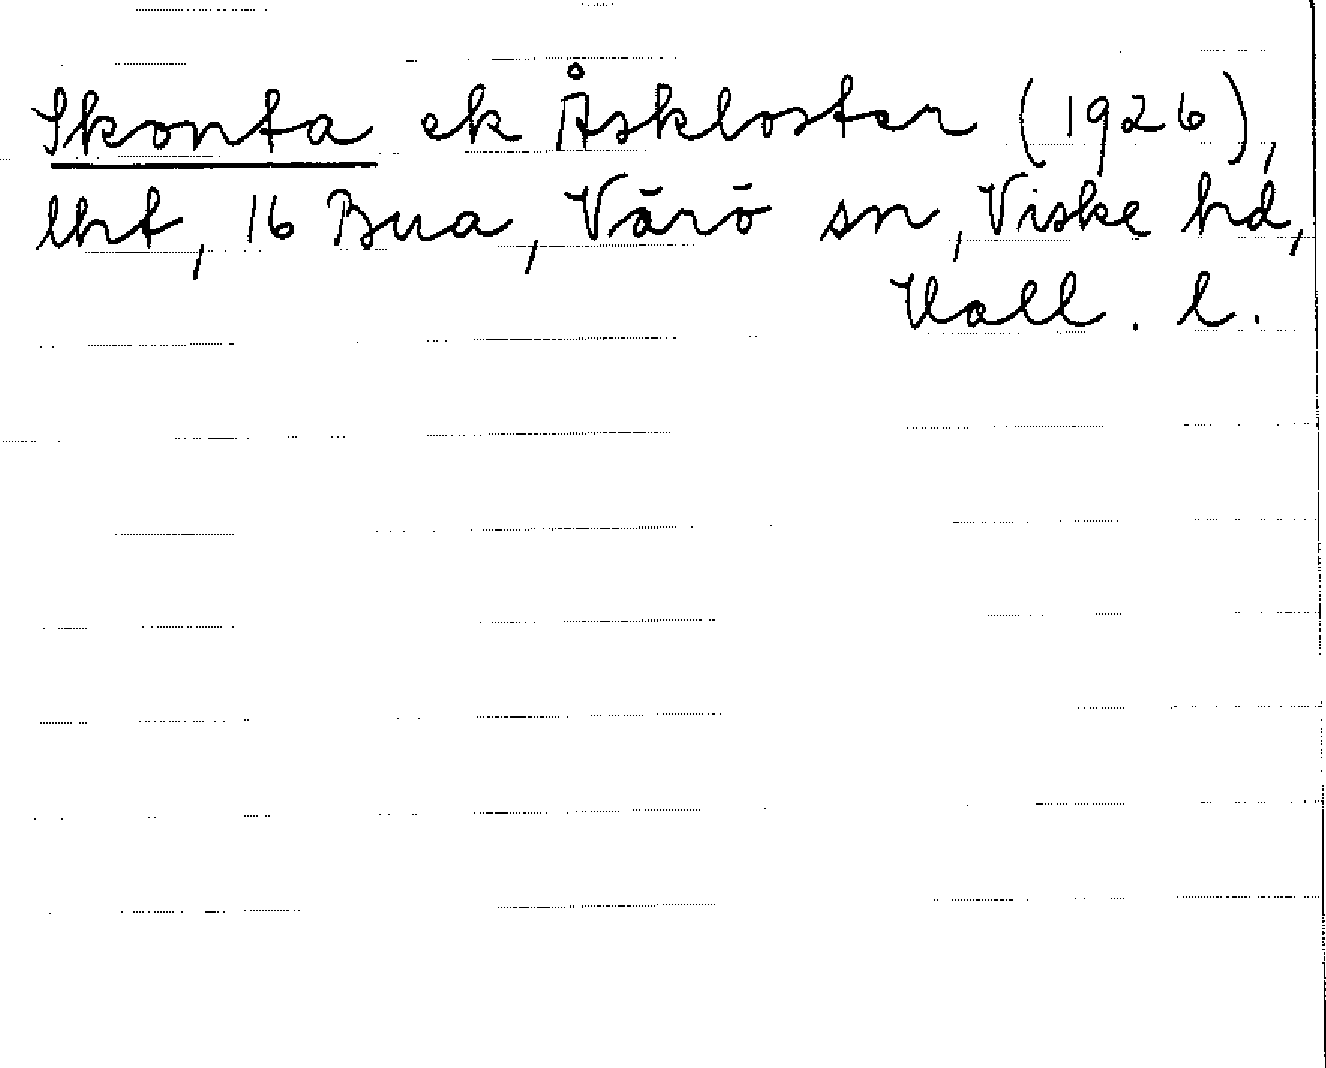 Skonta ek Åskloster (1926),
lht, 16 Bua, Värö sn, Viske hd,
Hall. l.